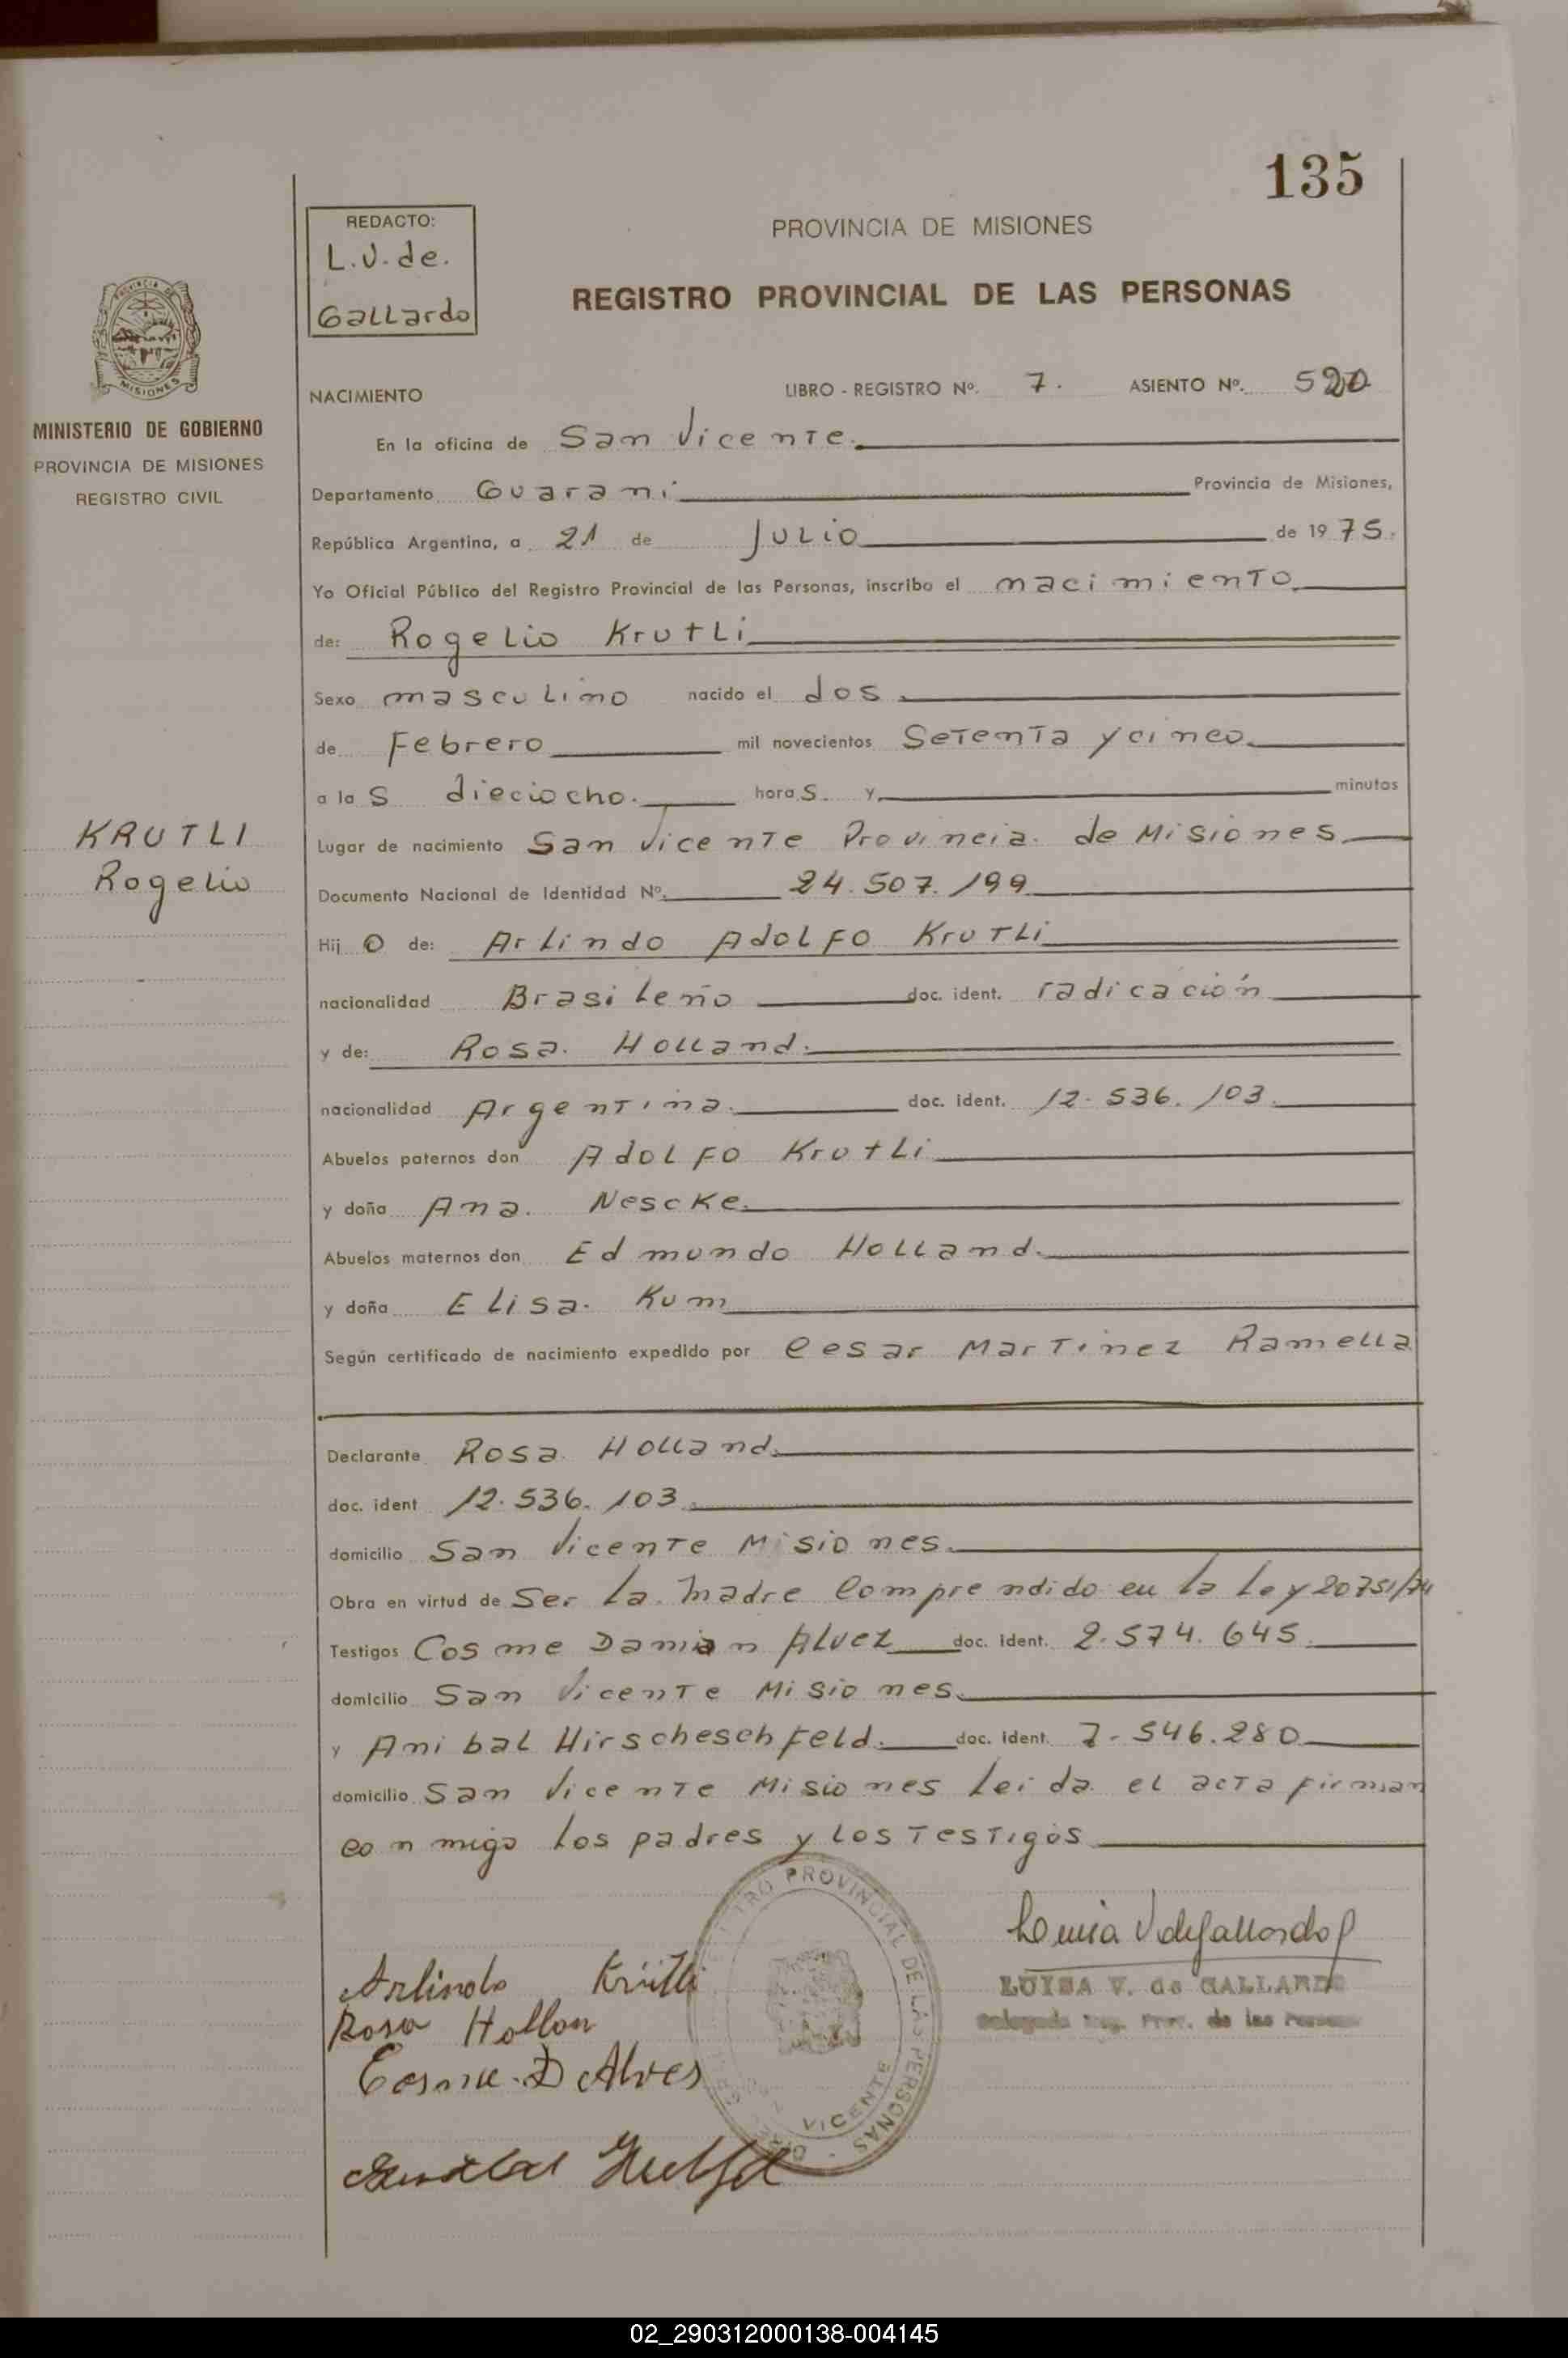 135
REDACTO:
L.V. de.
Gallardo
PROVINCIA DE MISIONES
REGISTRO PROVINCIAL DE LAS PERSONAS
PROVINCIA DE
MISIONES
MINISTERIO DE GOBIERNO
PROVINCIA DE MISIONES
REGISTRO CIVIL
NACIMIENTO LIBRO - REGISTRO Nº. 7. ASIENTO Nº. 520
En la oficina de San Vicente.
Departamento Guarani Provincia de Misiones,
República Argentina, a 21 de Julio de 1975.
Yo Oficial Público del Registro Provincial de las Personas, inscribo el nacimiento
de: Rogelio Krutli
Sexo masculino nacido el dos.
de Febrero mil novecientos Setenta y cinco.
a las dieciocho. horas. y minutos
KRUTLI
Rogelio
Lugar de nacimiento San Vicente Provincia. de Misiones.
Documento Nacional de Identidad Nº. 24.507.199
Hijo de: Arlindo Adolfo Krutli
nacionalidad Brasileño doc. ident. radicación
y de: Rosa. Holland.
nacionalidad Argentina. doc. ident. 12.536.103.
Abuelos paternos don Adolfo Krutli
y doña Ana. Nescke.
Abuelos maternos don Edmundo Holland.
y doña Elisa. Kum
Según certificado de nacimiento expedido por Cesar Martinez Ramella
Declarante Rosa Holland.
doc. ident 12.536.103.
domicilio San Vicente Misiones.
Obra en virtud de Ser la madre Comprendido en la Ley 20751/74
Testigos Cosme Damian Alvez doc. ident. 2.574.645.
domicilio San Vicente Misiones.
y Anibal Hirscheschfeld. doc. ident. 7.546.280
domicilio San Vicente Misiones leida el acta firman
conmigo los padres y los testigos
PROVINCIAL DE LAS PERSONAS
VICENTE
Luisa V de Gallardo
LUISA V. de GALLARDO
Delegada Reg. Prov. de las Personas
Arlindo Krütli
Rosa Hollan
Cosme. D Alves
02_290312000138-004145